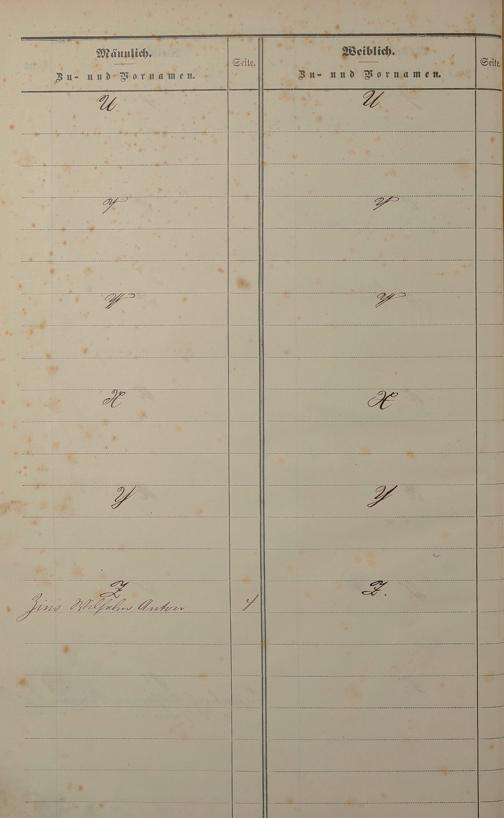 Männlich.
Zu- und Vornamen.
Seite.
U
V
W
X
Y
Z
Zins Wilhelm Anton
Weiblich.
Zu- und Vornamen.
Seite.
U
V
W
X
Y
Z.